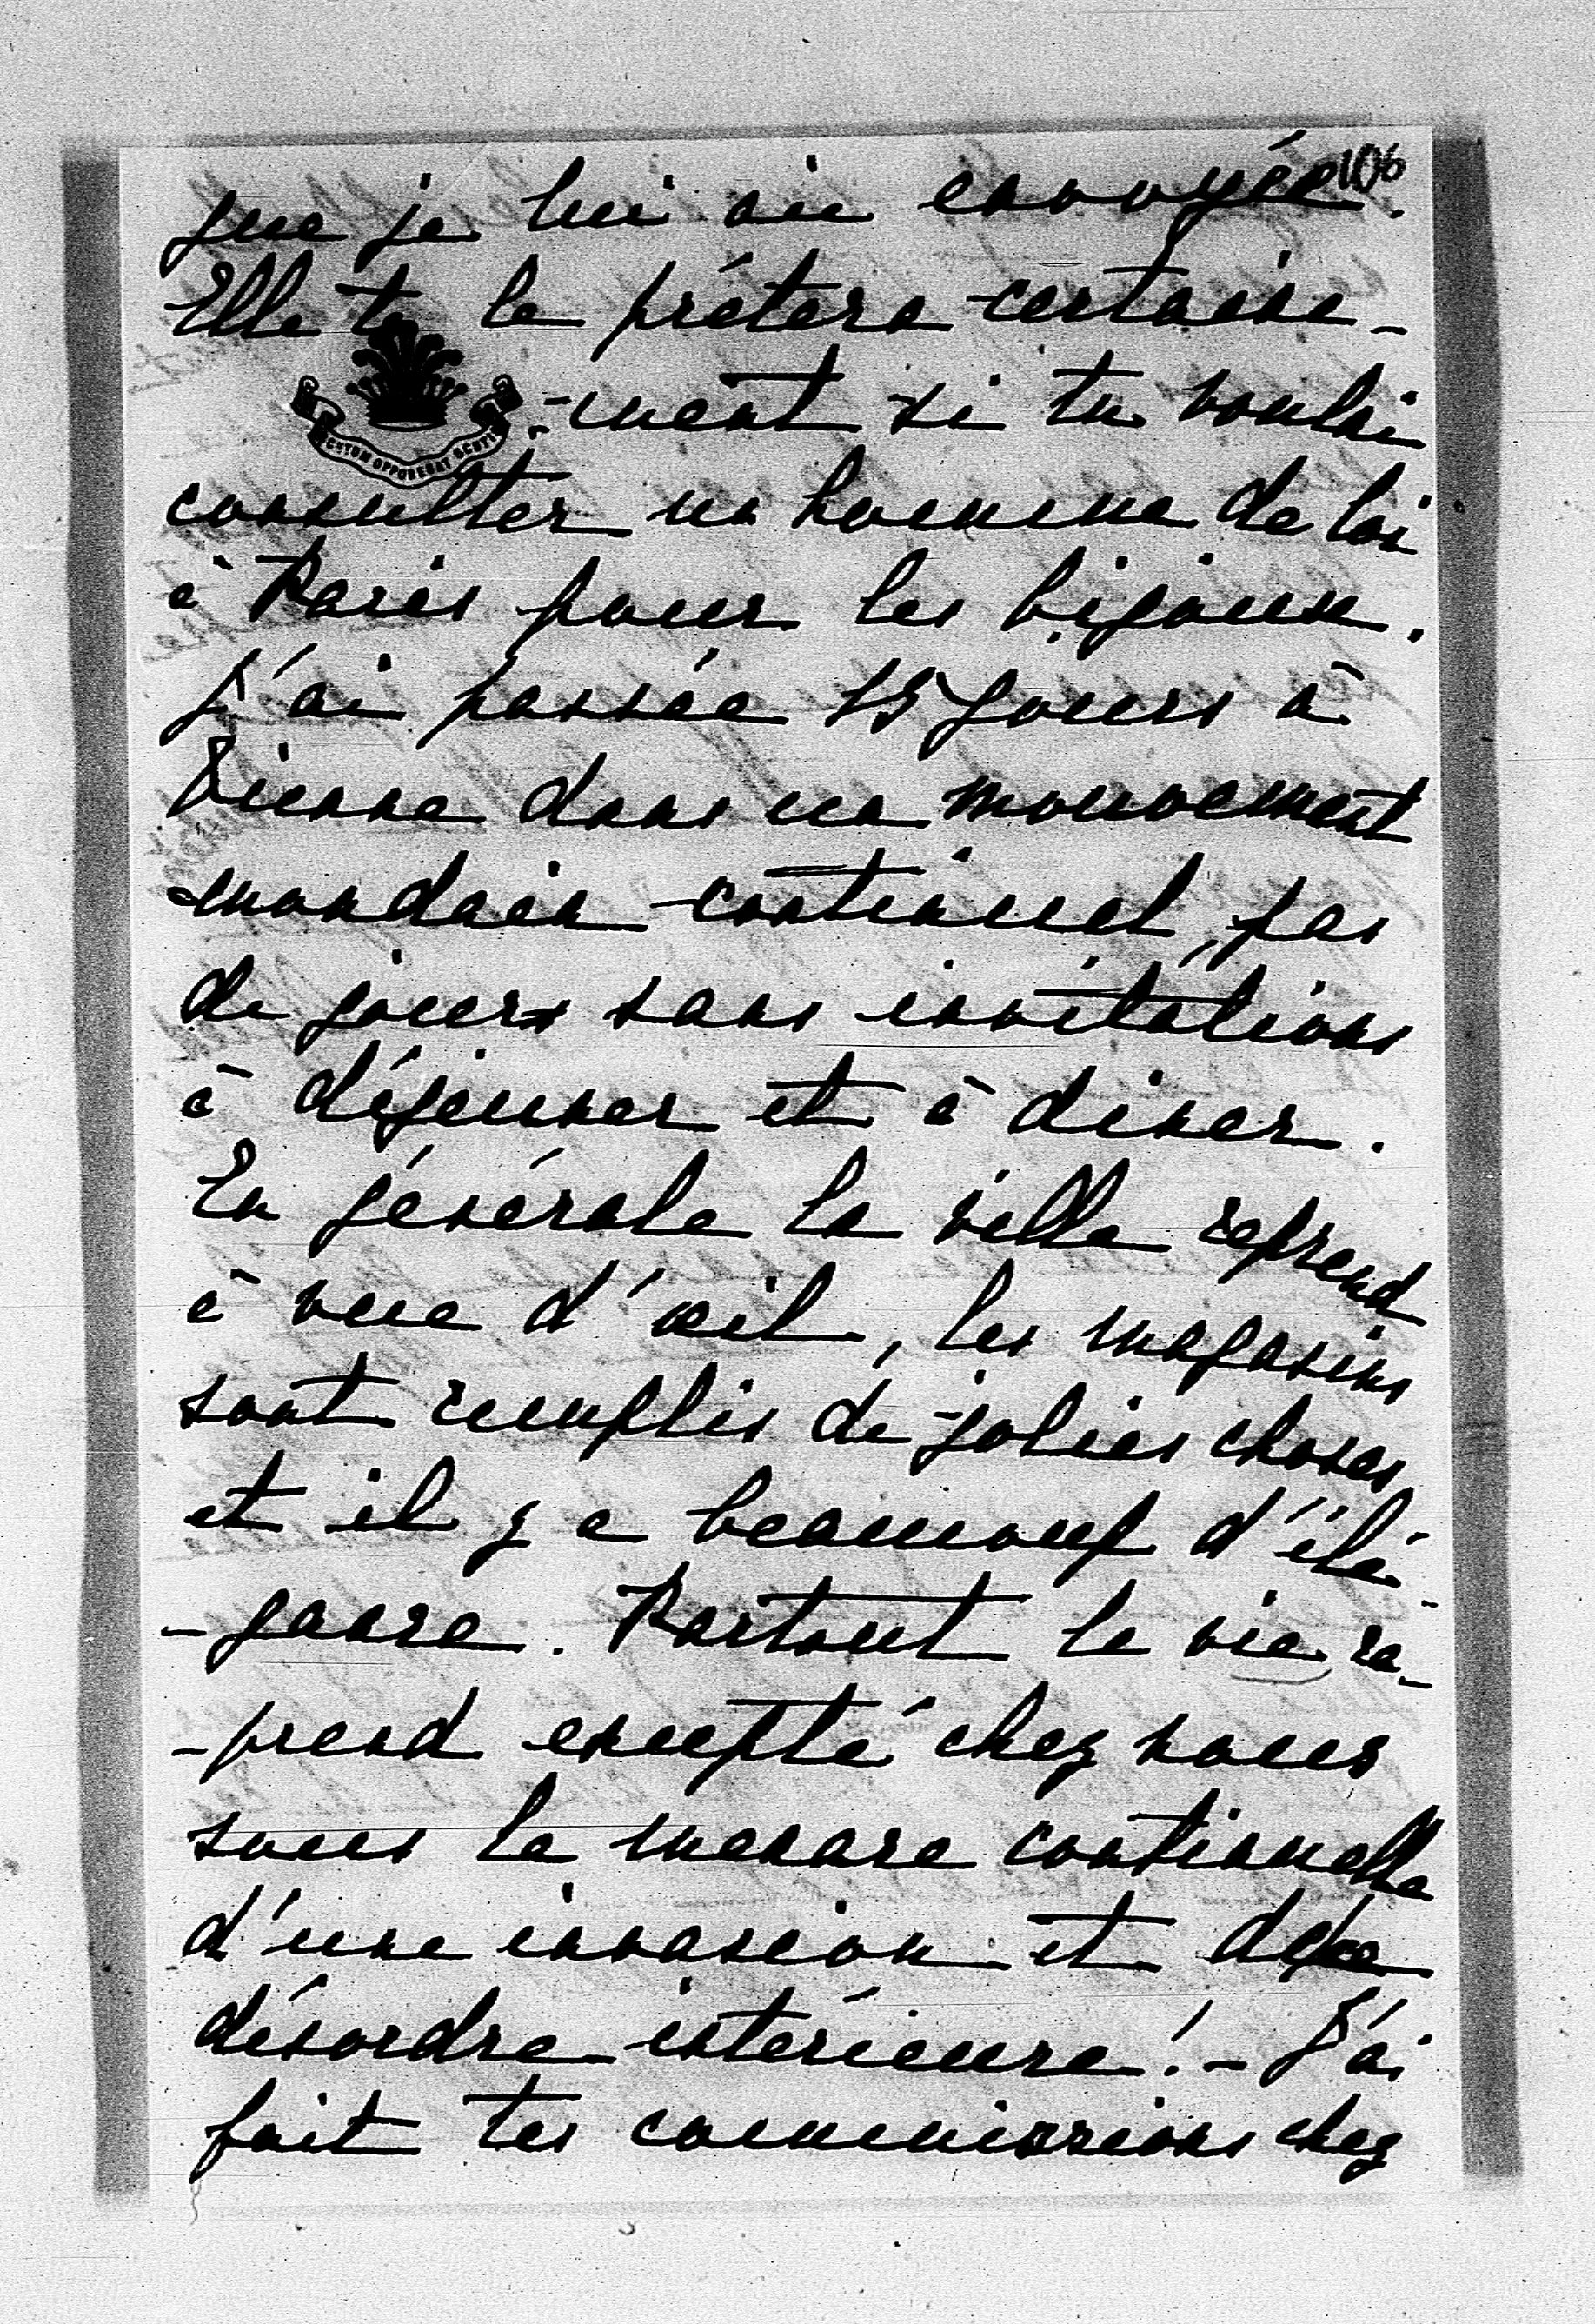 106
que je lui ai envoyée.
Elle te le prétera certaine-
-ment si tu voulai
SCUTUM OPPONEBAT SCUTI
consulter un homme de loi
à Paris pour les bijoux.
J'ai passée 15 jours à
Vienne dans un mouvement
mondain continuel, pas
de jours sans invitations
à déjeuner et à diner.
En générale la ville reprend
à vue d'œil, les magasins
sont remplis de jolies choses
et il y a beaucoup d'élé-
-gance. Partout la vie re-
-prend excepté chez nous
sous la menace continuelle
d'une invasion et de
désordre intérieure! - J'ai
fait tes commissions chez